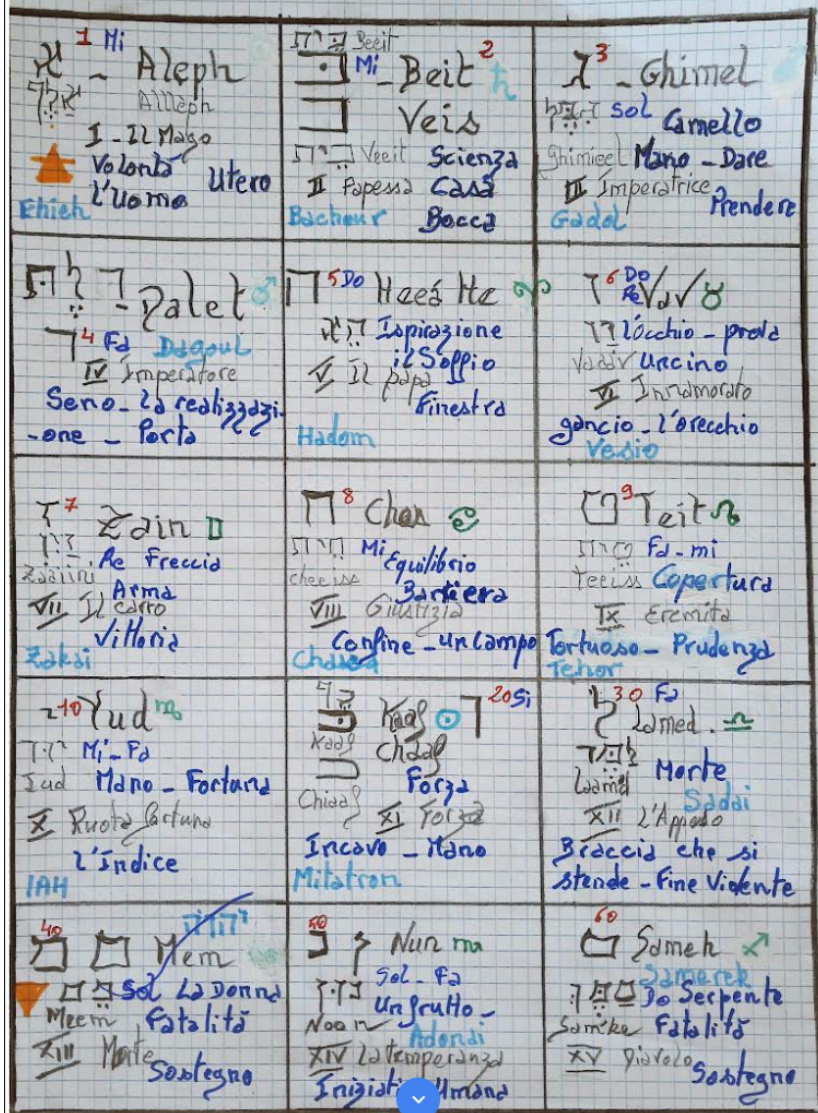 1 Mi
א - Aleph
Alleph
I - Il Mago
Volontà
Utero
L'Uomo
Ehieh
Beeit
2
בּ Mi - Beit ♄
ב Veis
Veeit Scienza
II Papessa Casa
Bacheur Bocca
ג 3 - Ghimel
Sol Camello
Ghimeel Mano - Dare
III Imperatrice
Prendere
Gadol
- Dalet ♂
ד 4 Fa Dagoul
IV Imperatore
Seno - la realizzazi-
-one - Porta
ה 5 Do Heeá He ♈
Ispirazione
il Soffio
V Il papa
Finestra
Hadom
ו 6 Do Re Vav ♉
l'occhio - prova
Vaaav Uncino
VI Innamorato
gancio - l'orecchio
Vesio
ז 7 Zain ♊
Re Freccia
Zaaiini Arma
VII Il carro
Vittoria
Zakai
ח 8 Chaa ♋
Mi Equilibrio
cheeiss Barriera
VIII Giustizia
Confine - un campo
ט 9 Teit ♌
Fa - mi
Teeiss Copertura
IX Eremita
Tortuoso - Prudenza
Tehor
י 10 Yud ♍
Mi - Fa
Iud Mano - Fortuna
X Ruota fortuna
L'Indice
IAH
כּ Kaaf ☉ 20 Si
Kaaf Chaaf
Forza
Chiaaf
XI Forza
Incavo - Mano
Mitatron
ל 30 Fa
Lamed. ♎
Laamd Morte
Sadai
XII L'Appeso
Braccia che si
stende - Fine Violente
40
ם מ Mem
Sol La Donna
Meem Fatalità
XIII Morte
Sostegno
50
נ Nun ♏
Sol - Fa
Un frutto -
Noon Adonai
XIV La temperanza
Umana
60
ס Sameh ♐
Samerek
Do Serpente
Sameke Fatalità
XV Diavolo
Sostegno